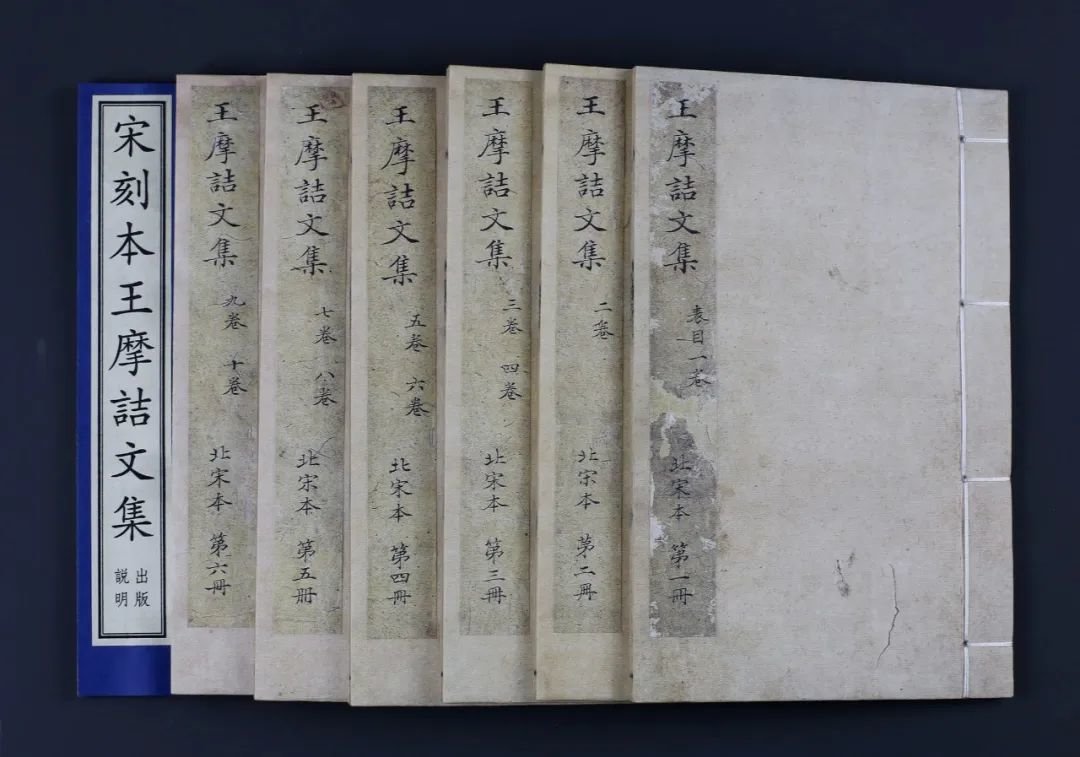 王摩詰文集 表目一卷 北宋本 第一冊
王摩詰文集 二卷 北宋本 第二冊
王摩詰文集 三卷 四卷 北宋本 第三冊
王摩詰文集 五卷 六卷 北宋本 第四冊
王摩詰文集 七卷 八卷 北宋本 第五冊
王摩詰文集 九卷 十卷 北宋本 第六冊
宋刻本王摩詰文集
出版
説明